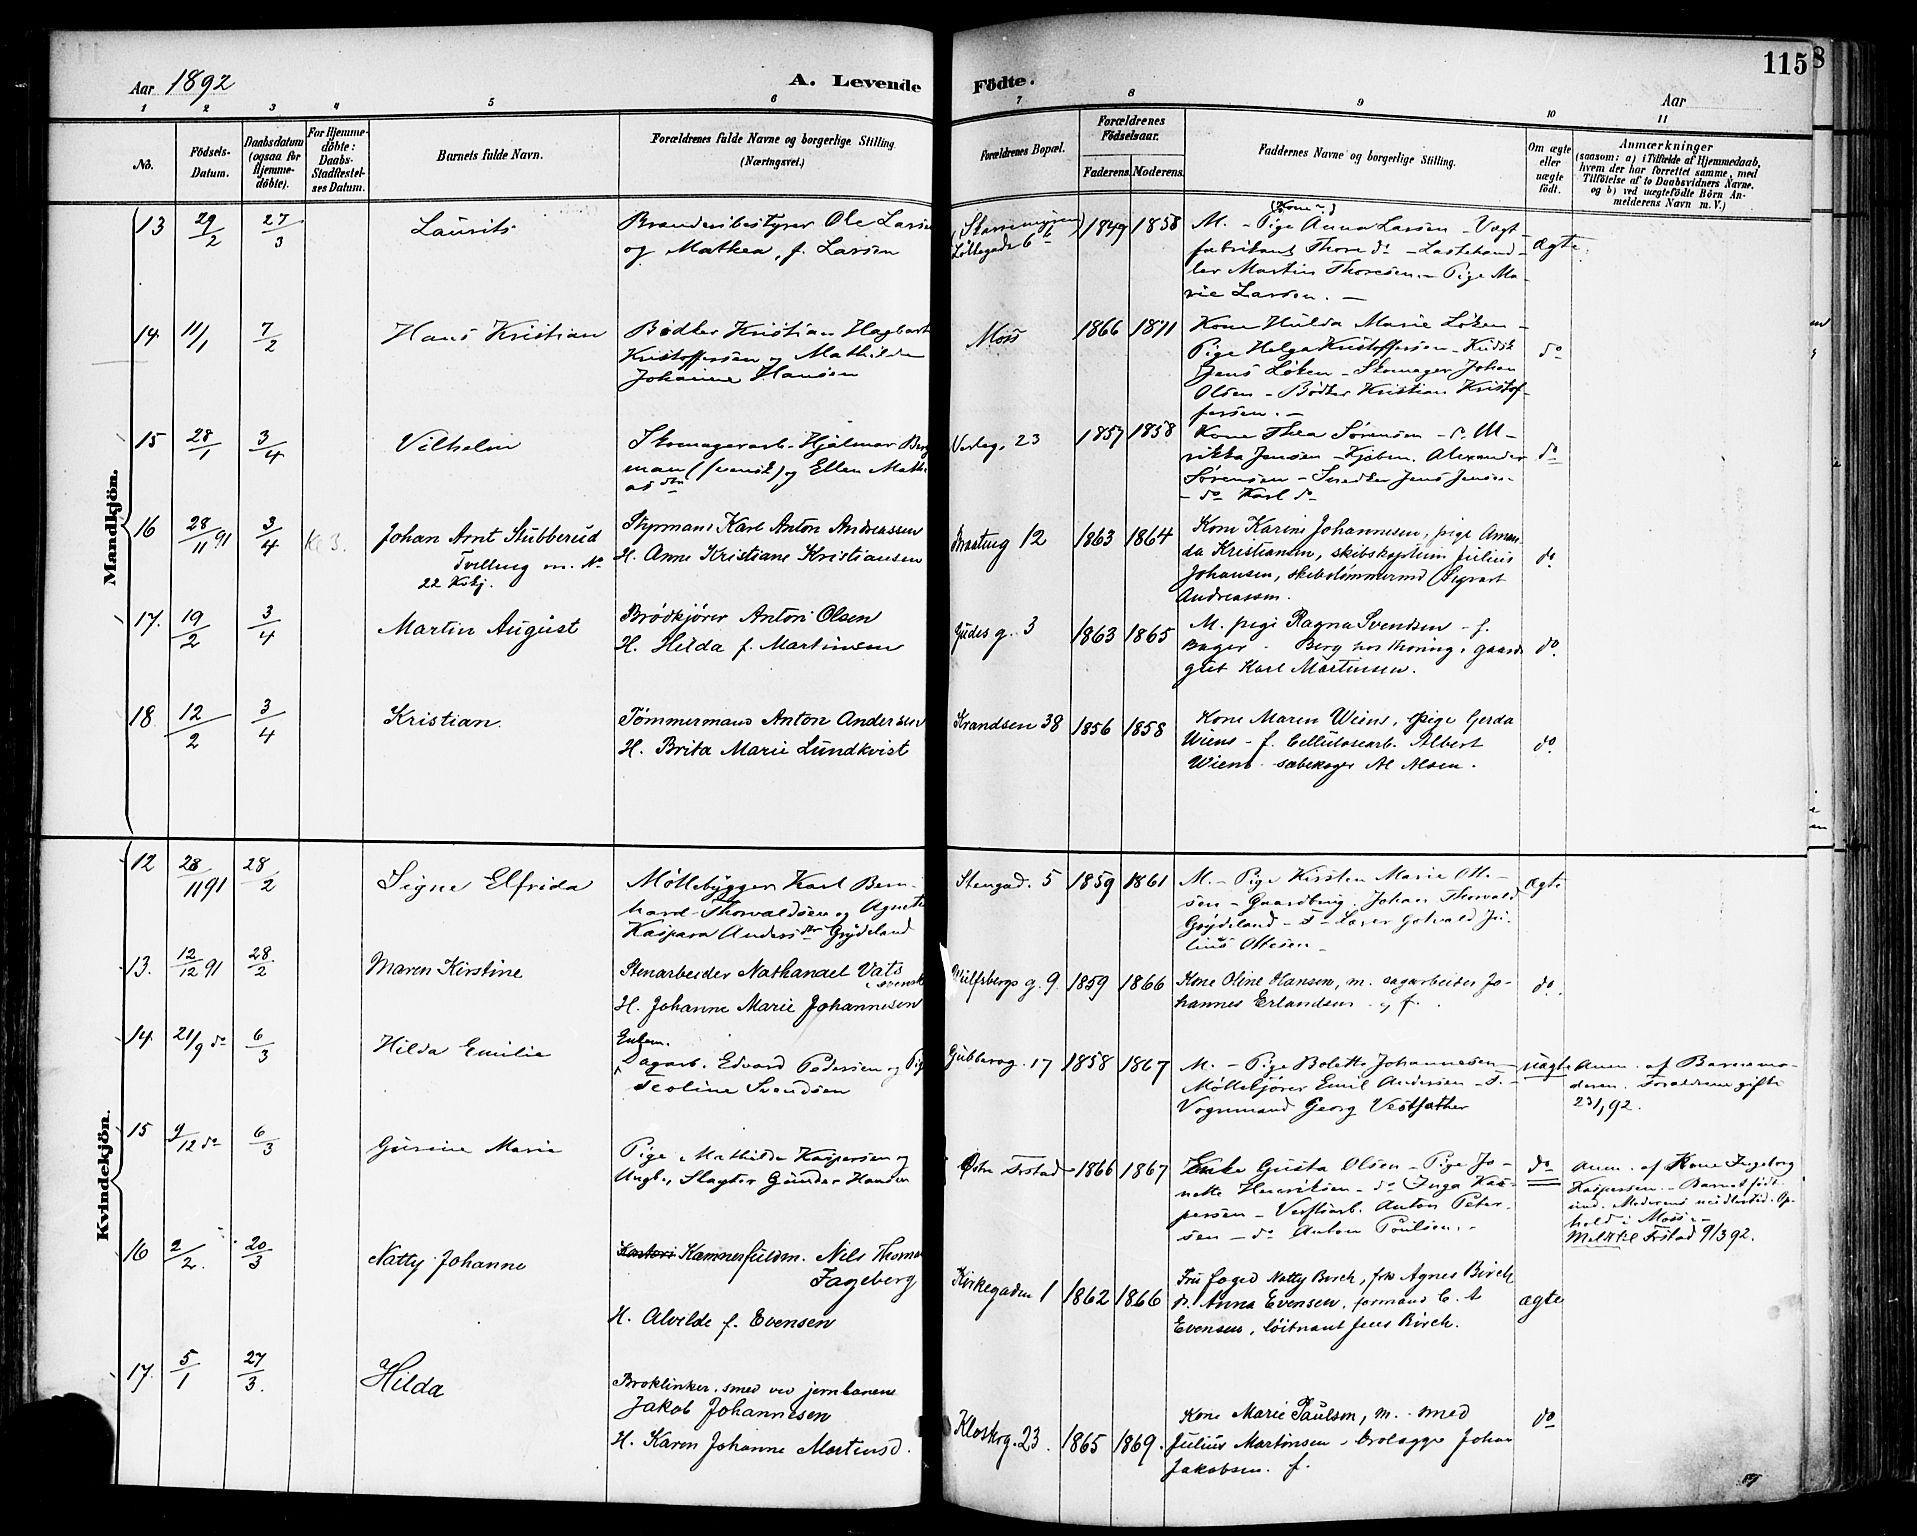 115
8
Aar 1892
A. Levende Födte.
Aar
1 2 3 4 5 6 7 8 9 10 11
No.
Födsels-Datum.
Daabsdatum (ogsaa for Hjemme-döbte).
For Hjemme-döbte: Daabs-Stadfæstel-ses Datum.
Barnets fulde Navn.
Forældrenes fulde Navne og borgerlige Stilling. (Næringsvei.)
Forældrenes Bopæl.
Forældrenes Födselsaar.
Faderens. Moderens.
Faddernes Navne og borgerlige Stilling.
Om ægte eller uægte födt.
Anmærkninger
(saasom: a) i Tilfælde af Hjemmedaab, hvem der har forrettet samme, med Tilföielse af to Daabsvidners Navne. og b) ved uægtefödte Börn An-melderens Navn m. V.)
Mandkjön.
13 29/2 27/3 Laurits
Branderibestyrer Ole Larsen
og Mathea, f. Larsen
Løkkegade 6 b 1849 1858
(Kone)
M. – Pige Anna Larsen – Vægt-
fabrikant Thore do – Lastehand-
ler Martin Thoresen. – Pige Ma-
rie Larsen. –
ægte.
14. 11/1 7/2 Hans Kristian
Bødker Kristian Hagbart
Kristoffersen og Mathilde
Johanne Hansen
Moss 1866 1871
Kone Hulda Marie Løken –
Pige Helga Kristoffersen – Kudsk
Jens Løken – Skomager Johan
Olsen – Bødker Kristian Kristof-
fersen. –
do
15 28/1 3/4 Vilhelm
Skomagerarb. Hjalmar Berg
man (svensk) og Ellen Mathi
asdtr
Verleg. 23 1857 1858
Kone Thea Sørensen –
Jensen – Kjøbm. Alexander
Sørensen – Snedker Jens Jensen
– do Karl do
do
16 28/11 91 3/4 Johan Arnt Stubberud
Tvilling m. No
22 Kvkj.
Styrmand Karl Anton Andreassen
H. Anne Kristiane Kristiansen
12 1863 1864
Kone Karine Johannesen, pige Aman
da Kristiansen, skibskaptein Julius
Johansen, skibstømmermd Sigvart
Andreassen.
do.
17. 19/2 3/4 Martin August
Brødkjører Anton Olsen
H. Hilda f. Martinsen
Gudes g. 3 1863 1865
M. pige Ragna Svendsen – f.
Bager Berg hos Thoring, gaard
gut Karl Martinsen.
do.
18. 12/2 3/4 Kristian.
Tømmermand Anton Andersen
H. Brita Marie Lundkvist
Strandgen 38 1856 1858
Kone Maren Wiens, pige Gerda
Wiens – f. Cellulosearb. Albert
Wiens – sæbekoger Al Alsen.
do.
Kvindekjön.
12 28/11 91 28/2 Signe Elfrida
Møllebygger Karl Bern-
hard Thorvaldsen og Agnethe
Kaspara Andersdtr Grydeland
Stengad. 5 1859 1861
M. – Pige Kirsten Marie Otte-
sen – Gaardbrug. Johan Thorvald
Grydeland – Lærer Gotvald Ju-
lius Ottesen –
ægte
13. 12/12 91 28/2 Maren Kirstine
Stenarbeider Nathanael Vats
svensk
H. Johanne Marie Johannesen
Wulfsbergs g. 9 1859 1866
Kone Oline Hansen, m. sagarbeider Jo-
hannes Erlandsen og f.
do.
14. 21/9 do 6/3 Hilda Emilie
Enkem.
Sagarb. Edvard Pedersen og Pige
Teoline Svendsen
Gubberog. 17 1858 1867
M. – Pige Bolette Johannesen –
Møllekjører Emil Andersen –
Vognmand Georg Vestfather
uægte
Anm. af Barnemo-
deren. Forældrene gifte
23/1 92.
15 9/12 do 6/3 Gusine Marie
Pige Mathilde Kaspersen og
Ungk. Slagter Gunder Hansen
Østre Frstad 1866 1867
Enke Gusta Olsen – Pige Jo-
nette Henriksen – do Inga Kas-
persen – Verftsarb. Anton Peter-
sen – do Anton Poulsen. –
do
Anm. af Kone Ingeborg
Kaspersen. – Barnet født
und. Moderens midlertid. Op-
hold i Moss. –
Meldt til Frstad 9/3 92.
16 2/2. 20/3 Natty Johanne
Kammerfuldm. Nils Thomas
Fageberg
H. Alvilde f. Evensen
Kirkegaden 1 1862 1866
Fru foged Natty Birch, frk Agnes Birch
d. Anna Evensen, formand C. A
Evensen, løitnant Jens Birch.
ægte
17. 5/1 27/3. Hilda
Broklinker, smed ved jernbanene
Jakob Johannesen
H. Karen Johanne Mortensd.
Klostrg. 23. 1865 1869.
Kone Marie Paulsen, m. – smed
Julius Martinsen, brolægge Johan
Jakobsen. f.
do